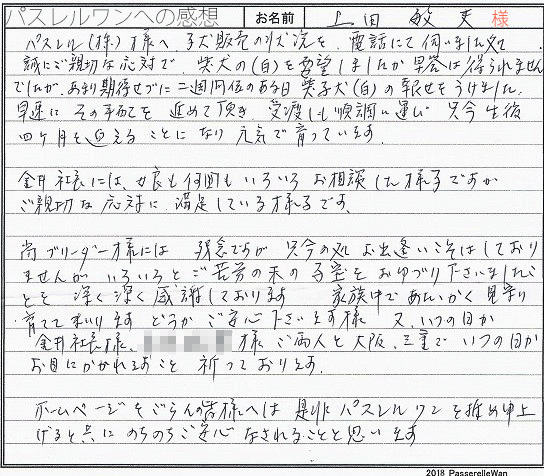 パスレルワンへの感想 お名前 上田 敏夫 様
パスレル(株)様へ 子犬販売の状況を、電話にて伺いました処
誠にご親切な応対で、柴犬の(白)を要望しましたが早答は得られません
でしたが、あまり期待せづに二週間位のある日 柴子犬(白)の報せをうけました。
早速に その手配を 進めて頂き 受渡しも順調に運び 只今 生後
四ヶ月を迎えることになり 元気で育っています。
金井社長には、娘も何回も いろいろ お相談した様子ですが
ご親切な応対に 満足している様子です。
尚ブリーダー様には 残念ですが 只今の処 お出逢いこそはしており
ませんが いろいろとご苦労の末の子宝を おゆづり下さいましたこ
とを 深く深く感謝しております 家族中であたたかく見守り
育ててまいります どうか ご安心下さいます様 又、いつの日か
金井社長様、 様 ご両人と大阪、三重で いつの日か
お目にかかれますこと 祈っております。
ホームページをごらんの皆様へは 是非 パスレルワンを推め申上
げると共に のちのちご安心 なされることと思います
2018 PasserelleWan